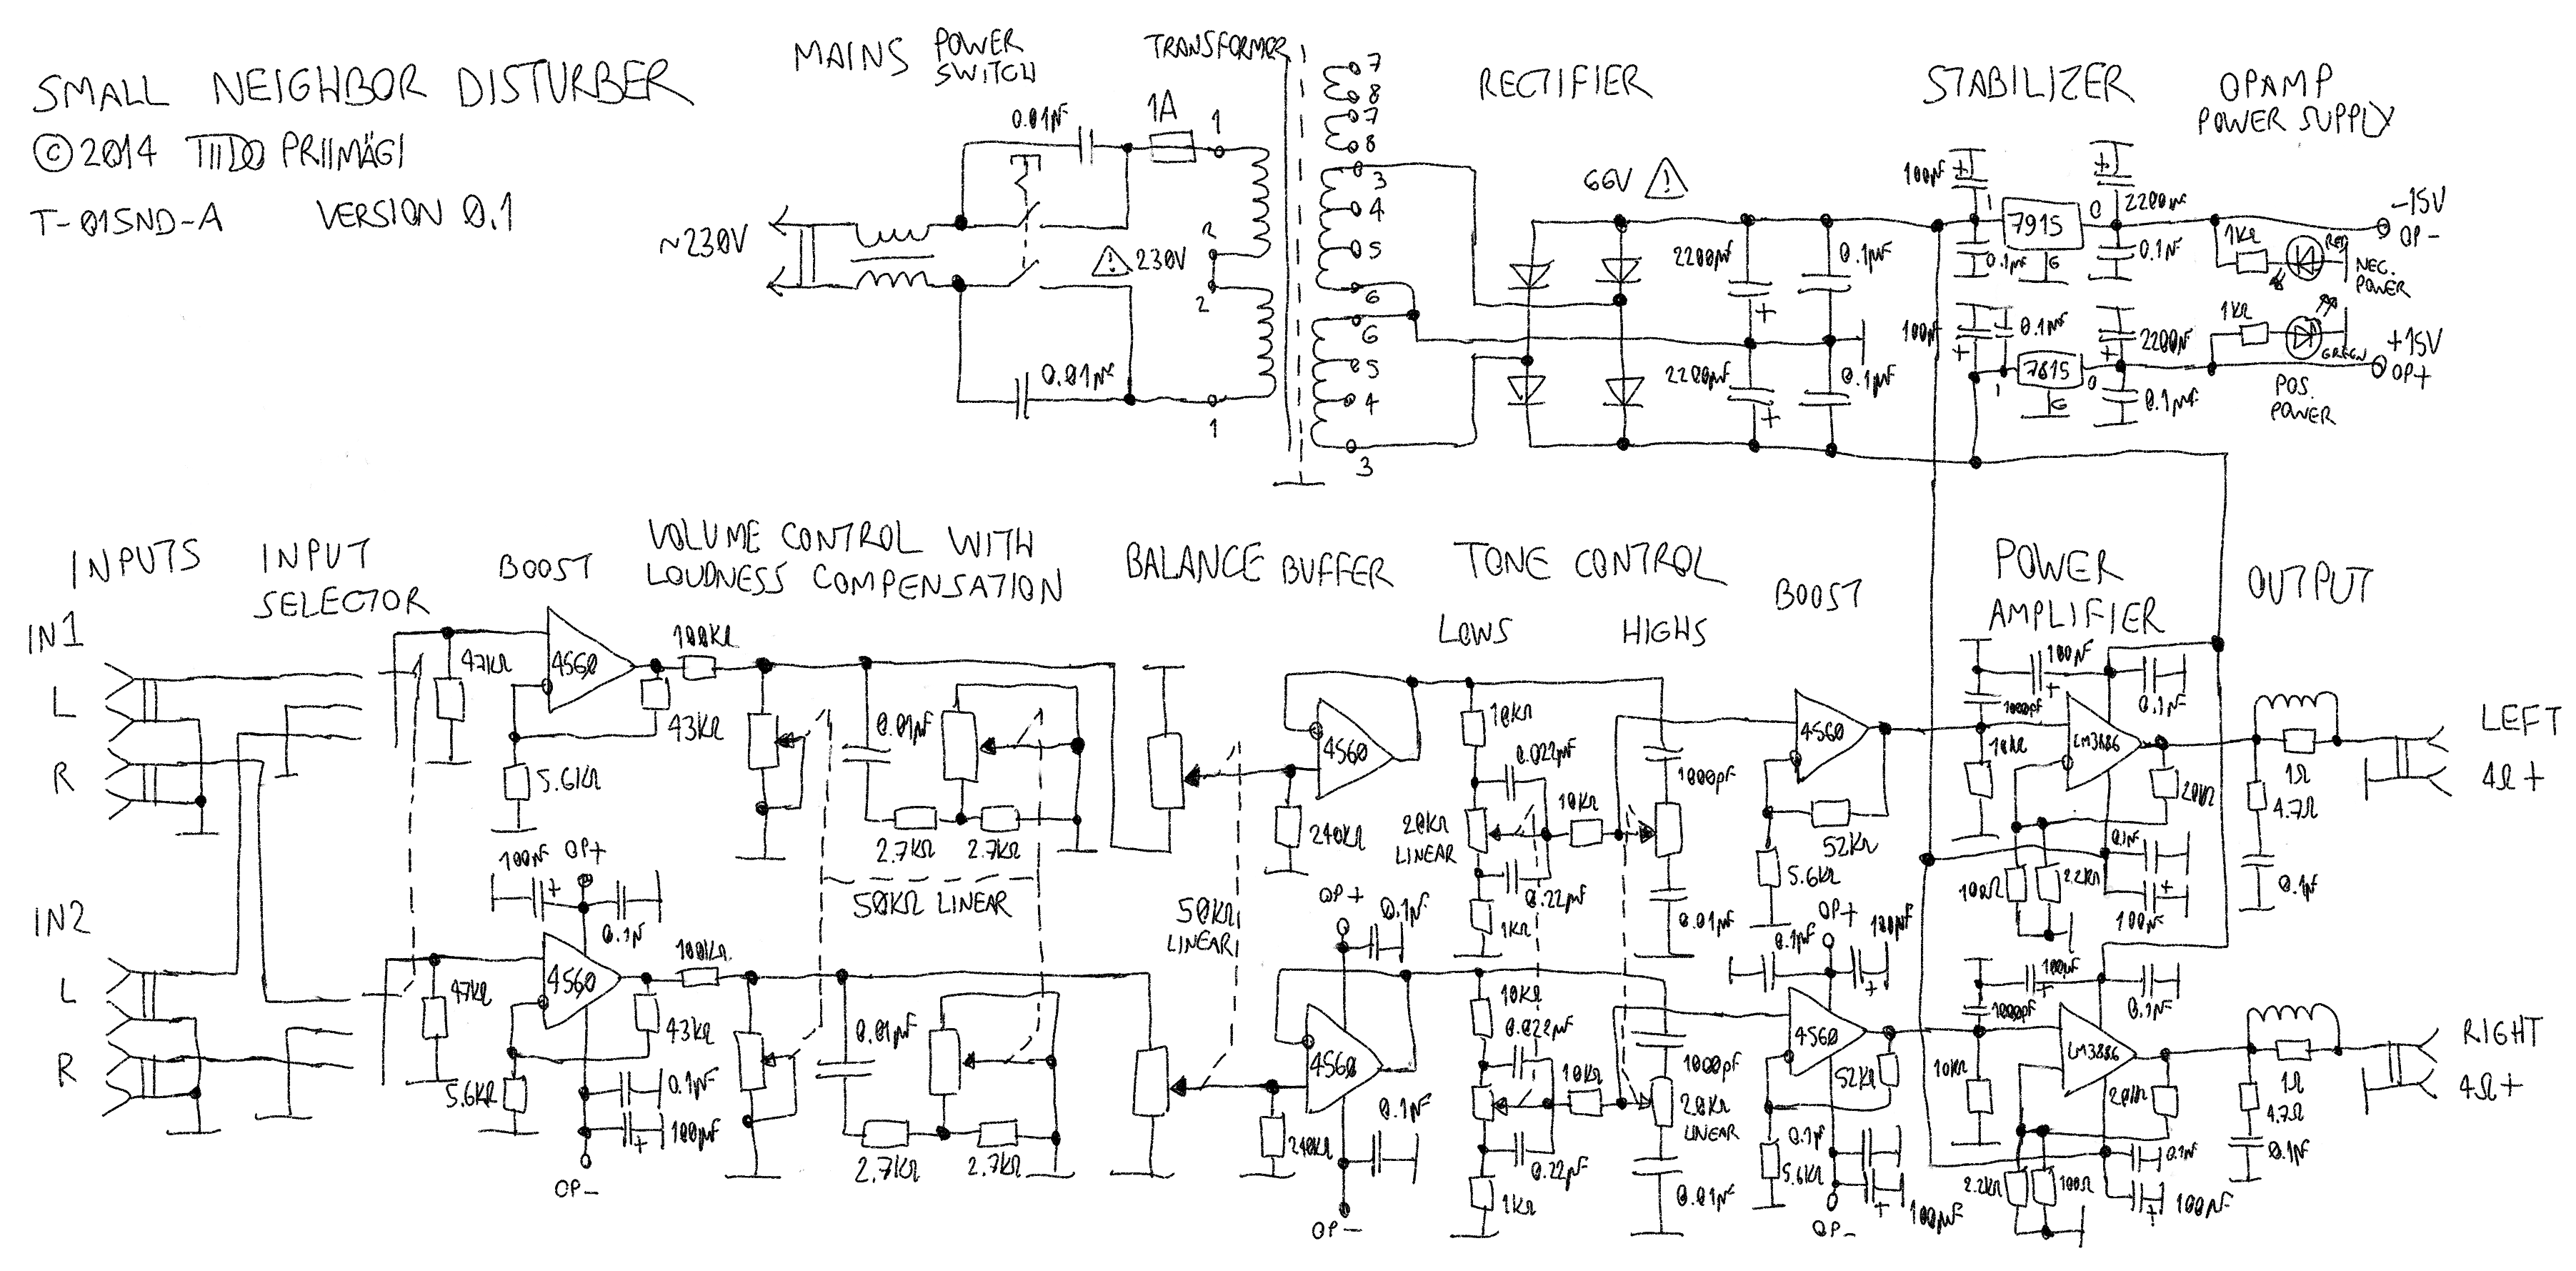 SMALL NEIGHBOR DISTURBER
©2014 TIIDO PRIIMÄGI
T-01SND-A VERSION 0.1
MAINS POWER SWITCH
TRANSFORMER
RECTIFIER
STABILIZER
OPAMP
POWER SUPPLY
~230V
0.01µF
1A
1
2
⚠ 230V
2
0.01µF
1
7
8
7
8
3
4
5
6
6
5
4
3
66V ⚠
2200µF
0.1µF
2200µF
0.1µF
100µF
+
I
7915
O
G
0.1µF
+
2200µF
0.1µF
1KΩ
RED
NEG.
POWER
-15V
OP-
100µF
+
0.1µF
I
7815
O
G
+
2200µF
0.1µF
1KΩ
GREEN
POS.
POWER
+15V
OP+
INPUTS
INPUT
SELECTOR
BOOST
VOLUME CONTROL WITH
LOUDNESS COMPENSATION
BALANCE
BUFFER
TONE CONTROL
LOWS
HIGHS
BOOST
POWER
AMPLIFIER
OUTPUT
IN1
L
R
IN2
L
R
47KΩ
4560
100KΩ
43KΩ
5.6KΩ
0.01µF
2.7KΩ
2.7KΩ
50KΩ LINEAR
50KΩ
LINEAR
4560
240KΩ
10KΩ
0.022µF
20KΩ
LINEAR
10KΩ
0.22µF
1KΩ
1000pF
0.01µF
4560
52KΩ
5.6KΩ
1000pF
100µF
+
0.1µF
10KΩ
LM3886
20KΩ
0.1µF
100Ω
2.2KΩ
+
100µF
1Ω
4.7Ω
0.1µF
LEFT
4Ω+
100µF
+
OP+
0.1µF
47KΩ
4560
100KΩ
43KΩ
5.6KΩ
0.1µF
+
100µF
OP-
0.01µF
2.7KΩ
2.7KΩ
OP+
0.1µF
4560
240KΩ
0.1µF
OP-
10KΩ
0.022µF
10KΩ
0.22µF
1KΩ
1000pF
20KΩ
LINEAR
0.01µF
OP+
0.1µF
100µF
+
4560
52KΩ
5.6KΩ
0.1µF
+
100µF
OP-
1000pF
100µF
+
0.1µF
10KΩ
LM3886
20KΩ
0.1µF
2.2KΩ
100Ω
+
100µF
1Ω
4.7Ω
0.1µF
RIGHT
4Ω+